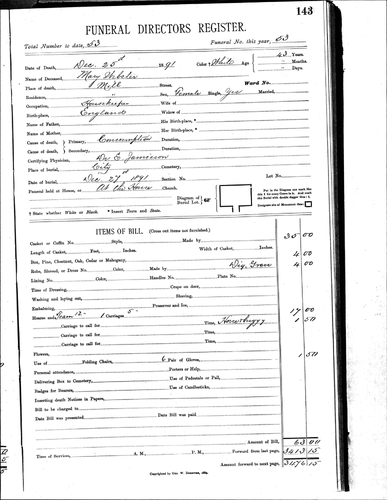 143
FUNERAL DIRECTORS REGISTER.
Total Number to date, 63 Funeral No. this year, 63
Date of Death, Dec. 25th 1891 Color † White Age 63 Years.
" Months
Name of Deceased, Mary " Days.
Place of death, Mill Street, Ward No.
Residence, " Sex, Female Single, Yes Married,
Occupation, Housekeeper Wife of
Birth-place, England Widow of
Name of Father, His Birth-place, *
Name of Mother, Her Birth-place, *
Cause of death, Primary, Consumption Duration,
Cause of death, Secondary, Duration,
Certifying Physician, Dr E. Jamieson
Place of burial, City Cemetery,
Date of burial, Dec. 27th 1891 Section No. Lot No.
Funeral held at Home, or At the House Church.
Diagram of Burial Lot,
Designate site of Monument thus
† State whether White or Black. * Insert Town and State.
ITEMS OF BILL. (Cross out items not furnished.)
Casket or Coffin No. Style, Made by 35 00
Length of Casket, Feet, Inches. Width of Casket, Inches.
Box, Pine, Chestnut, Oak, Cedar or Mahogany, 4 00
Robe, Shroud, or Dress No. Color, Made by Dig, Grave 4 00
Lining No. Color, Handles No. Plate No.
Time of Dressing, Crape on door,
Washing and laying out, Shaving,
Embalming, Preserver and Ice,
Hearse and Team 12- 1 Carriages 5- 17 00
Carriage to call for Time, 1 50
Carriage to call for Time,
Carriage to call for Time,
Carriage to call for Time,
Flowers,
Use of Folding Chairs, 6 Pair of Gloves, 1 50
Personal attendance, Porters or Help,
Delivering Box to Cemetery, Use of Pedestals or Pall,
Badges for Bearers, Use of Candlesticks,
Inserting death Notices in Papers,
Bill to be charged to
Date Bill was presented Date Bill was paid
Amount of Bill, 63 00
Time of Services, A. M., P. M., Forward from last page, 3413 15
Amount forward to next page, 3476 15